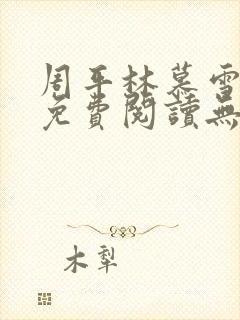 周平林慕雪
免費閱讀無
木犁